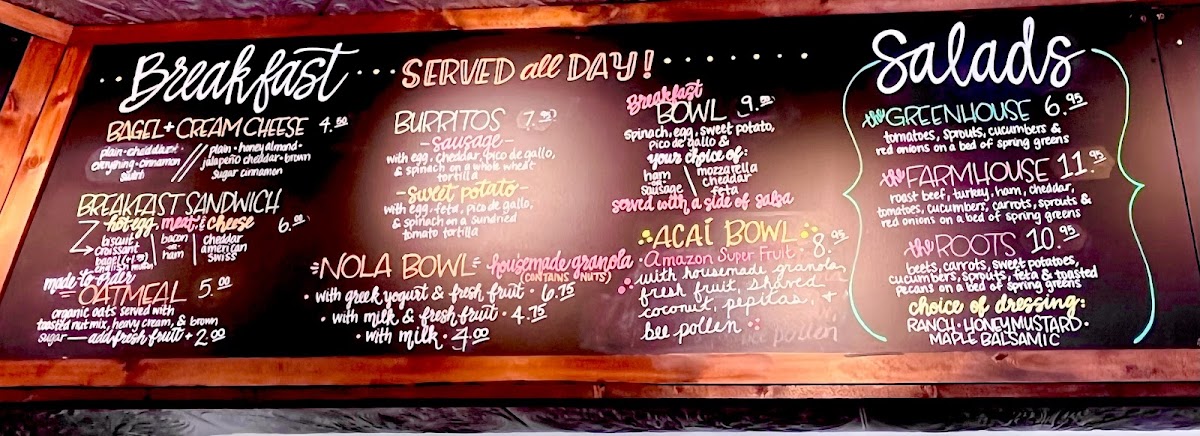 Breakfast
SERVED all DAY!
BAGEL + CREAM CHEESE 4.50
plain • cheddar •
everything • cinnamon
plain • honey almond •
jalapeño cheddar • brown
sugar cinnamon
BREAKFAST SANDWICH
hot egg, meat & cheese 6.00
biscuit
croissant
bagel (+1.00)
english muffin
bacon
or
ham
cheddar
american
swiss
made-to-order
OATMEAL 5.00
organic oats served with
toasted nut mix, heavy cream, & brown
sugar — add fresh fruit + 2.00
BURRITOS 7.95
- sausage -
with egg, cheddar, pico de gallo,
& spinach on a whole wheat
tortilla
- sweet potato -
with egg, feta, pico de gallo,
& spinach on a sundried
tomato tortilla
NOLA BOWL housemade granola
(CONTAINS NUTS)
• with greek yogurt & fresh fruit • 6.75
• with milk & fresh fruit • 4.75
• with milk • 4.00
Breakfast
BOWL 9.00
spinach, egg, sweet potato,
pico de gallo &
your choice of:
ham
sausage
mozzarella
cheddar
feta
served with a side of salsa
AÇAÍ BOWL 8.95
• Amazon Super Fruit •
with housemade granola,
fresh fruit, shaved
coconut, pepitas, +
bee pollen
Salads
the GREENHOUSE 6.95
tomatoes, sprouts, cucumbers &
red onions on a bed of spring greens
the FARMHOUSE 11.95
roast beef, turkey, ham, cheddar,
tomatoes, cucumbers, carrots, sprouts &
red onions on a bed of spring greens
the ROOTS 10.95
beets, carrots, sweet potatoes,
cucumbers, sprouts, feta & toasted
pecans on a bed of spring greens
choice of dressing:
RANCH • HONEY MUSTARD •
MAPLE BALSAMIC